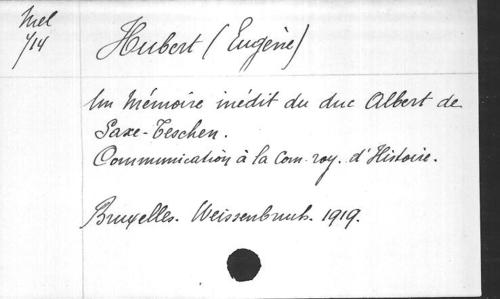 Mel
714
Hubert (Eugène)
Un Mémoire inédit du duc Albert de
Saxe-Teschen.
Communication à la Com. roy. d'Histoire.
Bruxelles. Weissenbruch. 1919.